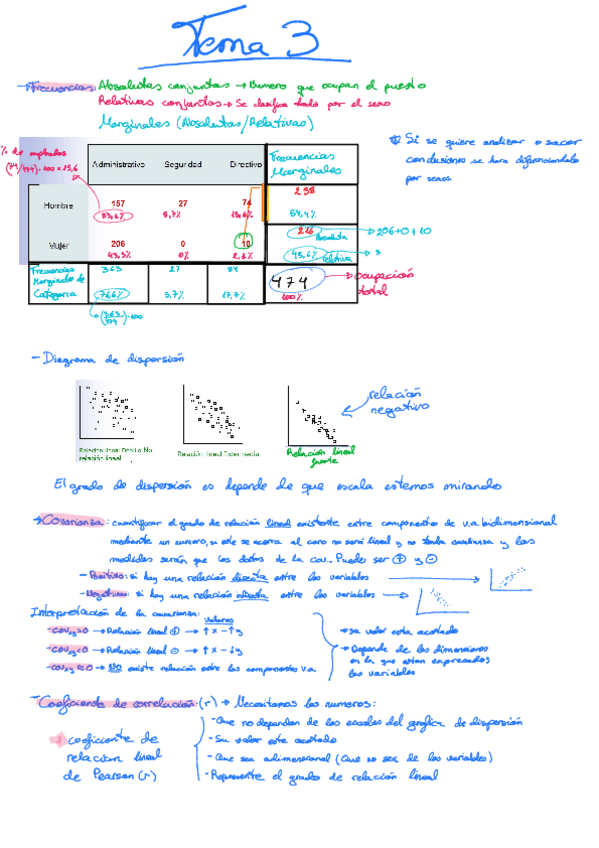 Tema 3
→Frecuencias: Absolutas conjuntas → Numero que ocupan el puesto
Relativas conjuntas → Se clasifica todo por el sexo
Marginales (Absolutas/Relativas)
Si se quiere analizar o sacar
conclusiones se hara diferenciandolo
por sexos
% de empleados
(74/474)·100 = 15,6
Administrativo Seguridad Directivo Frecuencias Marginales
Hombre 157 27 74 258
33,1% 5,7% 15,6% 54,4%
Mujer 206 0 10 216 Absoluta → 206+0+10
43,5% 0% 2,1% 45,6% relativa
Frecuencias Marginales de Categoria 363 27 84 474 → ocupación total
76,6% 5,7% 17,7% 100%
→(363/474)·100
- Diagrama de dispersión
relación
negativo
Relación lineal Débil o No
relación lineal
Relación lineal Intermedia
Relación lineal
fuerte
El grado de dispersión es depende de que escala estemos mirando
→Covarianza: cuantificar el grado de relación lineal existente entre componentes de v.a. bidimensional
mediante un numero, si este se acerca al cero no será lineal y no tendra covarianza y las
medidas serán que los datos de la cov. Puede ser + y -
- Positivo: si hay una relación directa entre las variables
- Negativa: si hay una relación inversa entre las variables
Interpretación de la covarianza: Valores
- cov xy > 0 → Relación lineal + → ↑x - ↑y
- cov xy < 0 → Relación lineal - → ↑x - ↓y
- cov xy ≈ 0 → NO existe relación entre los componentes v.a.
→ su valor esta acotado
→ Depende de las dimensiones
en la que estan expresadas
las variables
- Coeficiente de correlación: (r) → Necesitamos los numeros:
- Que no dependan de las escalas del grafico de dispersión
- Su valor este acotado
- Que sea adimensional (Que no sea de las variables)
- Represente el grado de relación lineal
→ coeficiente de
relacion lineal
de Pearson (r)